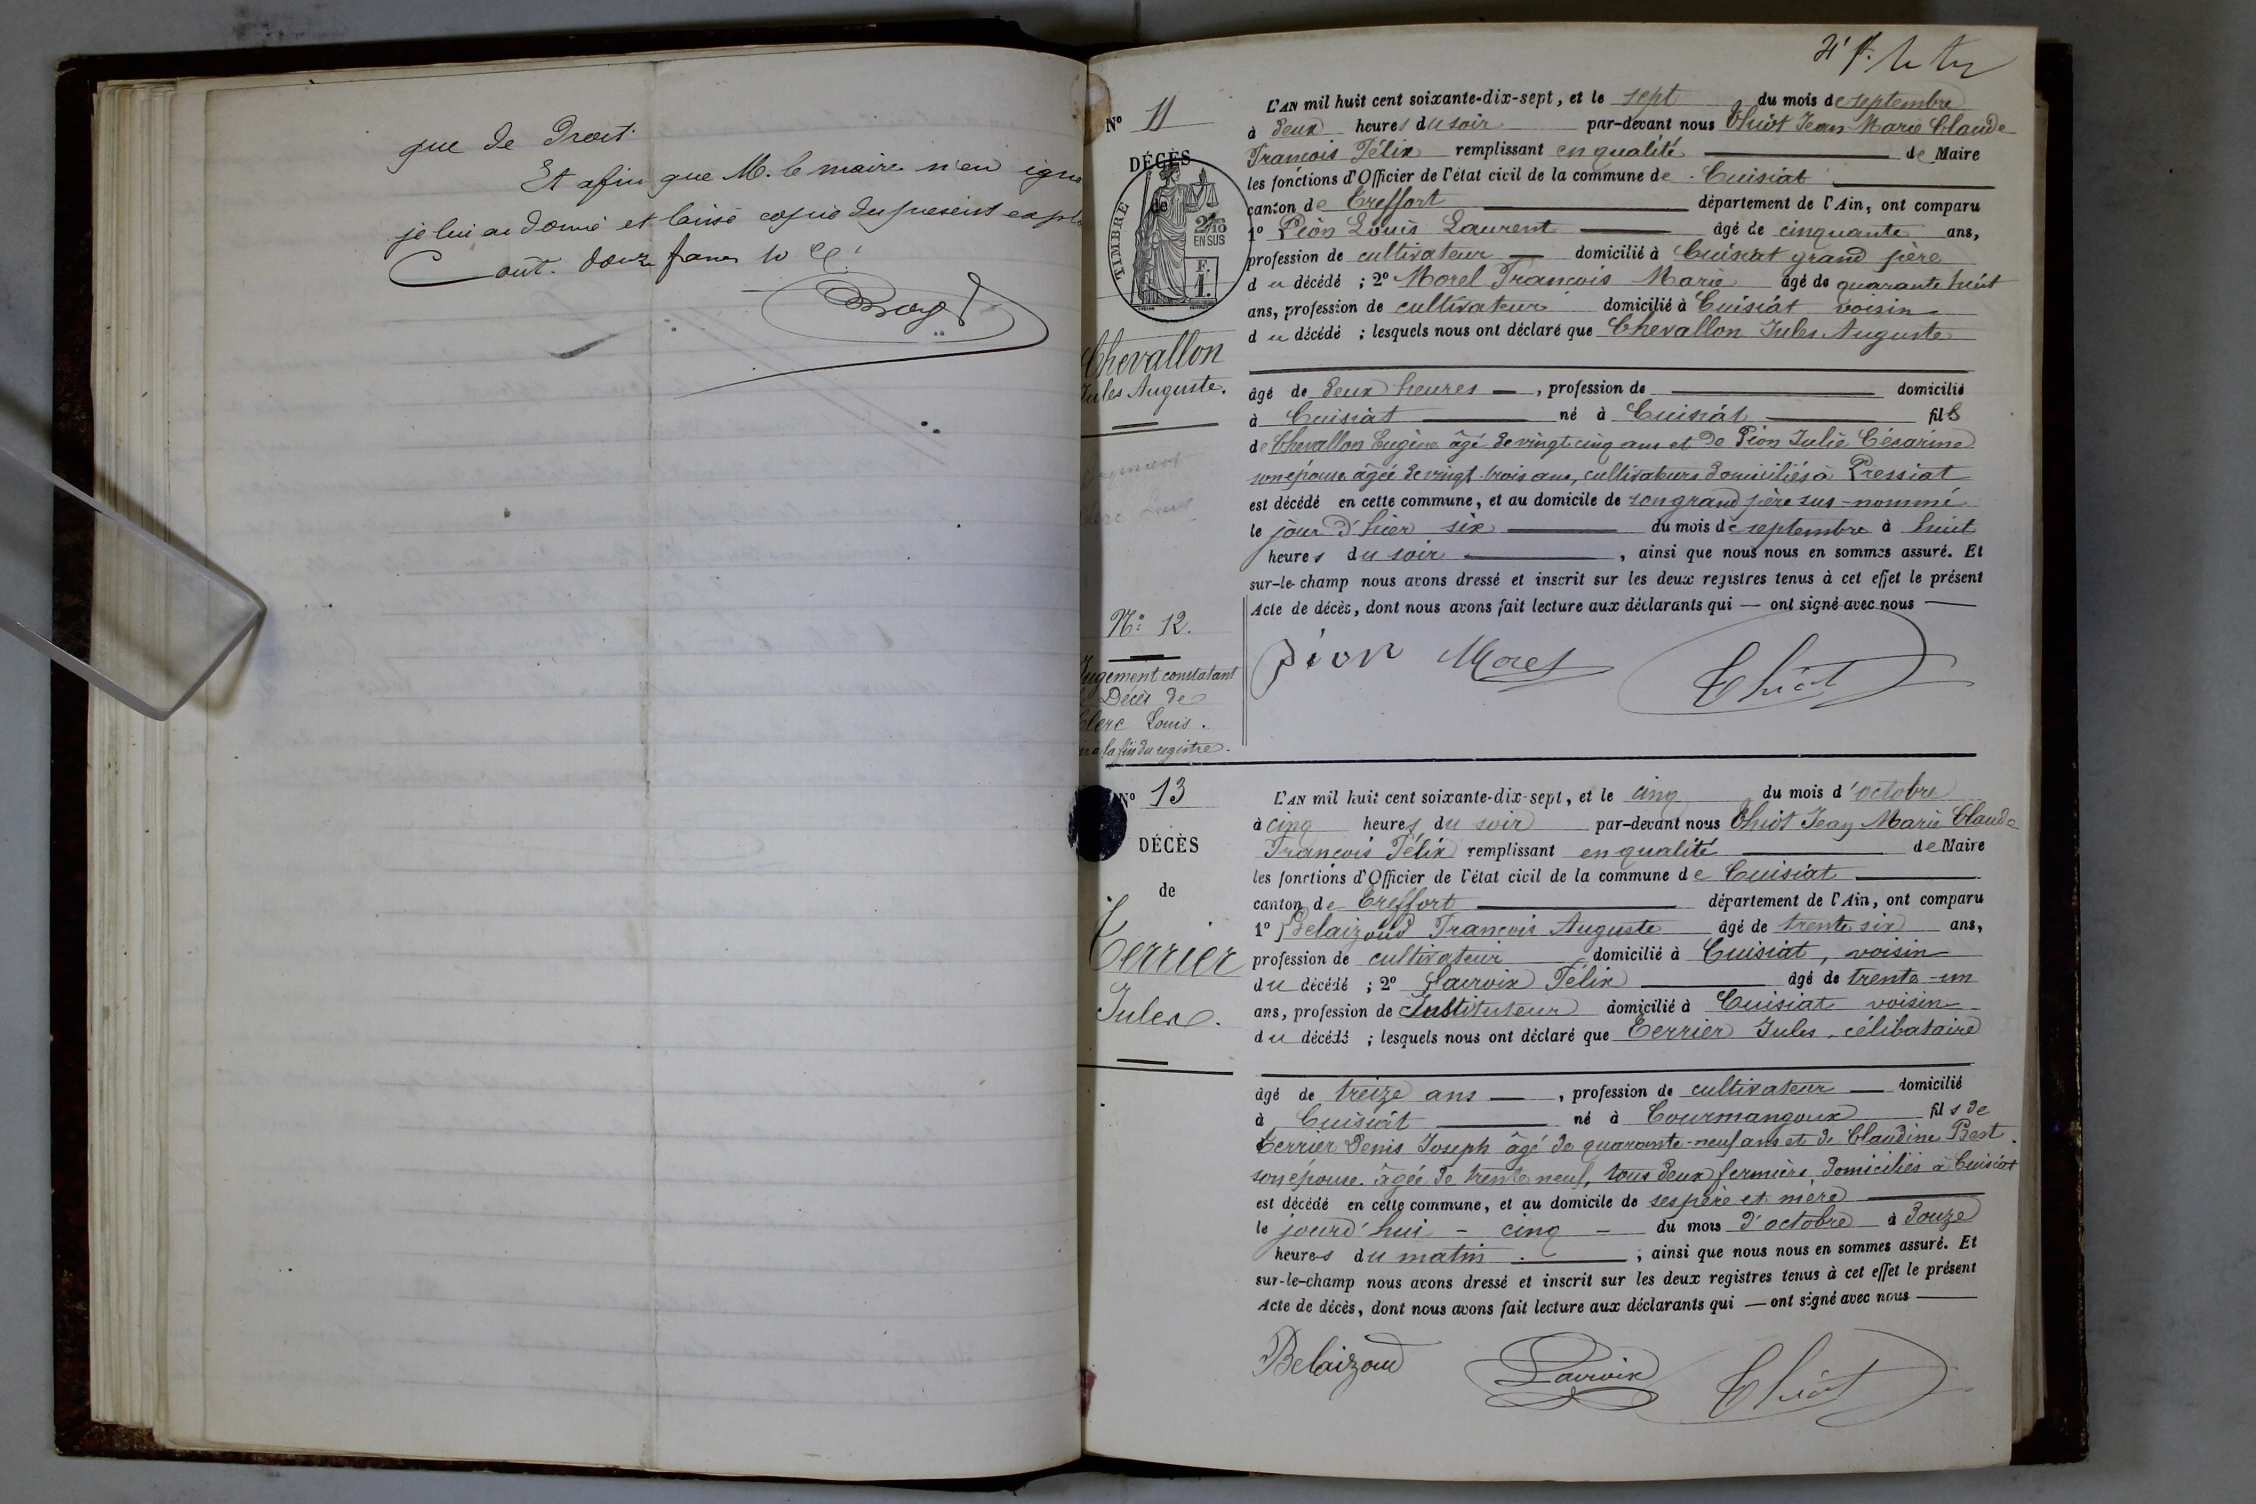 que de Droit.
Et afin que M. le maire n'en igno
je lui ai donné et laissé copie du présent expl
Coût. douze francs 10 c.
4e f.
N° 11
DÉCÈS
de
TIMBRE
2/10
EN SUS
F.
1.
Chevallon
Jules Auguste.
L'AN mil huit cent soixante-dix-sept, et le sept du mois de septembre
à deux heures du soir par-devant nous Thiot Jean Marie Claude
François Félix remplissant en qualité de Maire
les fonctions d'Officier de l'état civil de la commune de Cuisiat
canton de Treffort département de l'Ain, ont comparu
1° Pion Louis Laurent âgé de cinquante ans,
profession de cultivateur domicilié à Cuisiat grand père
du décédé ; 2° Morel François Marie âgé de quarante huit
ans, profession de cultivateur domicilié à Cuisiat voisin
du décédé ; lesquels nous ont déclaré que Chevallon Jules Auguste
âgé de deux heures, profession de domicilié
à Cuisiat né à Cuisiat fils
de Chevallon Eugène âgé de vingt cinq ans et de Pion Julie Césarine
son épouse âgée de vingt trois ans, cultivateurs domiciliés à Pressiat
est décédé en cette commune, et au domicile de son grand père sus-nommé
le jour d'hier six du mois de septembre à huit
heures du soir, ainsi que nous nous en sommes assuré. Et
sur-le-champ nous avons dressé et inscrit sur les deux registres tenus à cet effet le présent
Acte de décès, dont nous avons fait lecture aux déclarants qui — ont signé avec nous
pion Morel Thiot
N° 12.
Jugement constatant
le Décès de
Clerc Louis.
la fin du registre.
N° 13
DÉCÈS
de
Terrier
Jules.
L'AN mil huit cent soixante-dix-sept, et le cinq du mois d'octobre
à cinq heures du soir par-devant nous Thiot Jean Marie Claude
François Félix remplissant en qualité de Maire
les fonctions d'Officier de l'état civil de la commune de Cuisiat
canton de Treffort département de l'Ain, ont comparu
1° Belaizoud François Auguste âgé de trente six ans,
profession de cultivateur domicilié à Cuisiat, voisin
du décédé ; 2° Lacroix Félix âgé de trente-un
ans, profession de Instituteur domicilié à Cuisiat voisin
du décédé ; lesquels nous ont déclaré que Terrier Jules, célibataire
âgé de treize ans, profession de cultivateur domicilié
à Cuisiat né à Courmangoux fils de
Terrier Denis Joseph âgé de quarante-neuf ans et de Claudine Best
son épouse âgée de trente neuf, tous deux fermiers, domiciliés à Cuisiat
est décédé en cette commune, et au domicile de ses père et mère
le jourd'hui - cinq - du mois d'octobre à douze
heures du matin, ainsi que nous nous en sommes assuré. Et
sur-le-champ nous avons dressé et inscrit sur les deux registres tenus à cet effet le présent
Acte de décès, dont nous avons fait lecture aux déclarants qui — ont signé avec nous
Belaizoud Lacroix Thiot